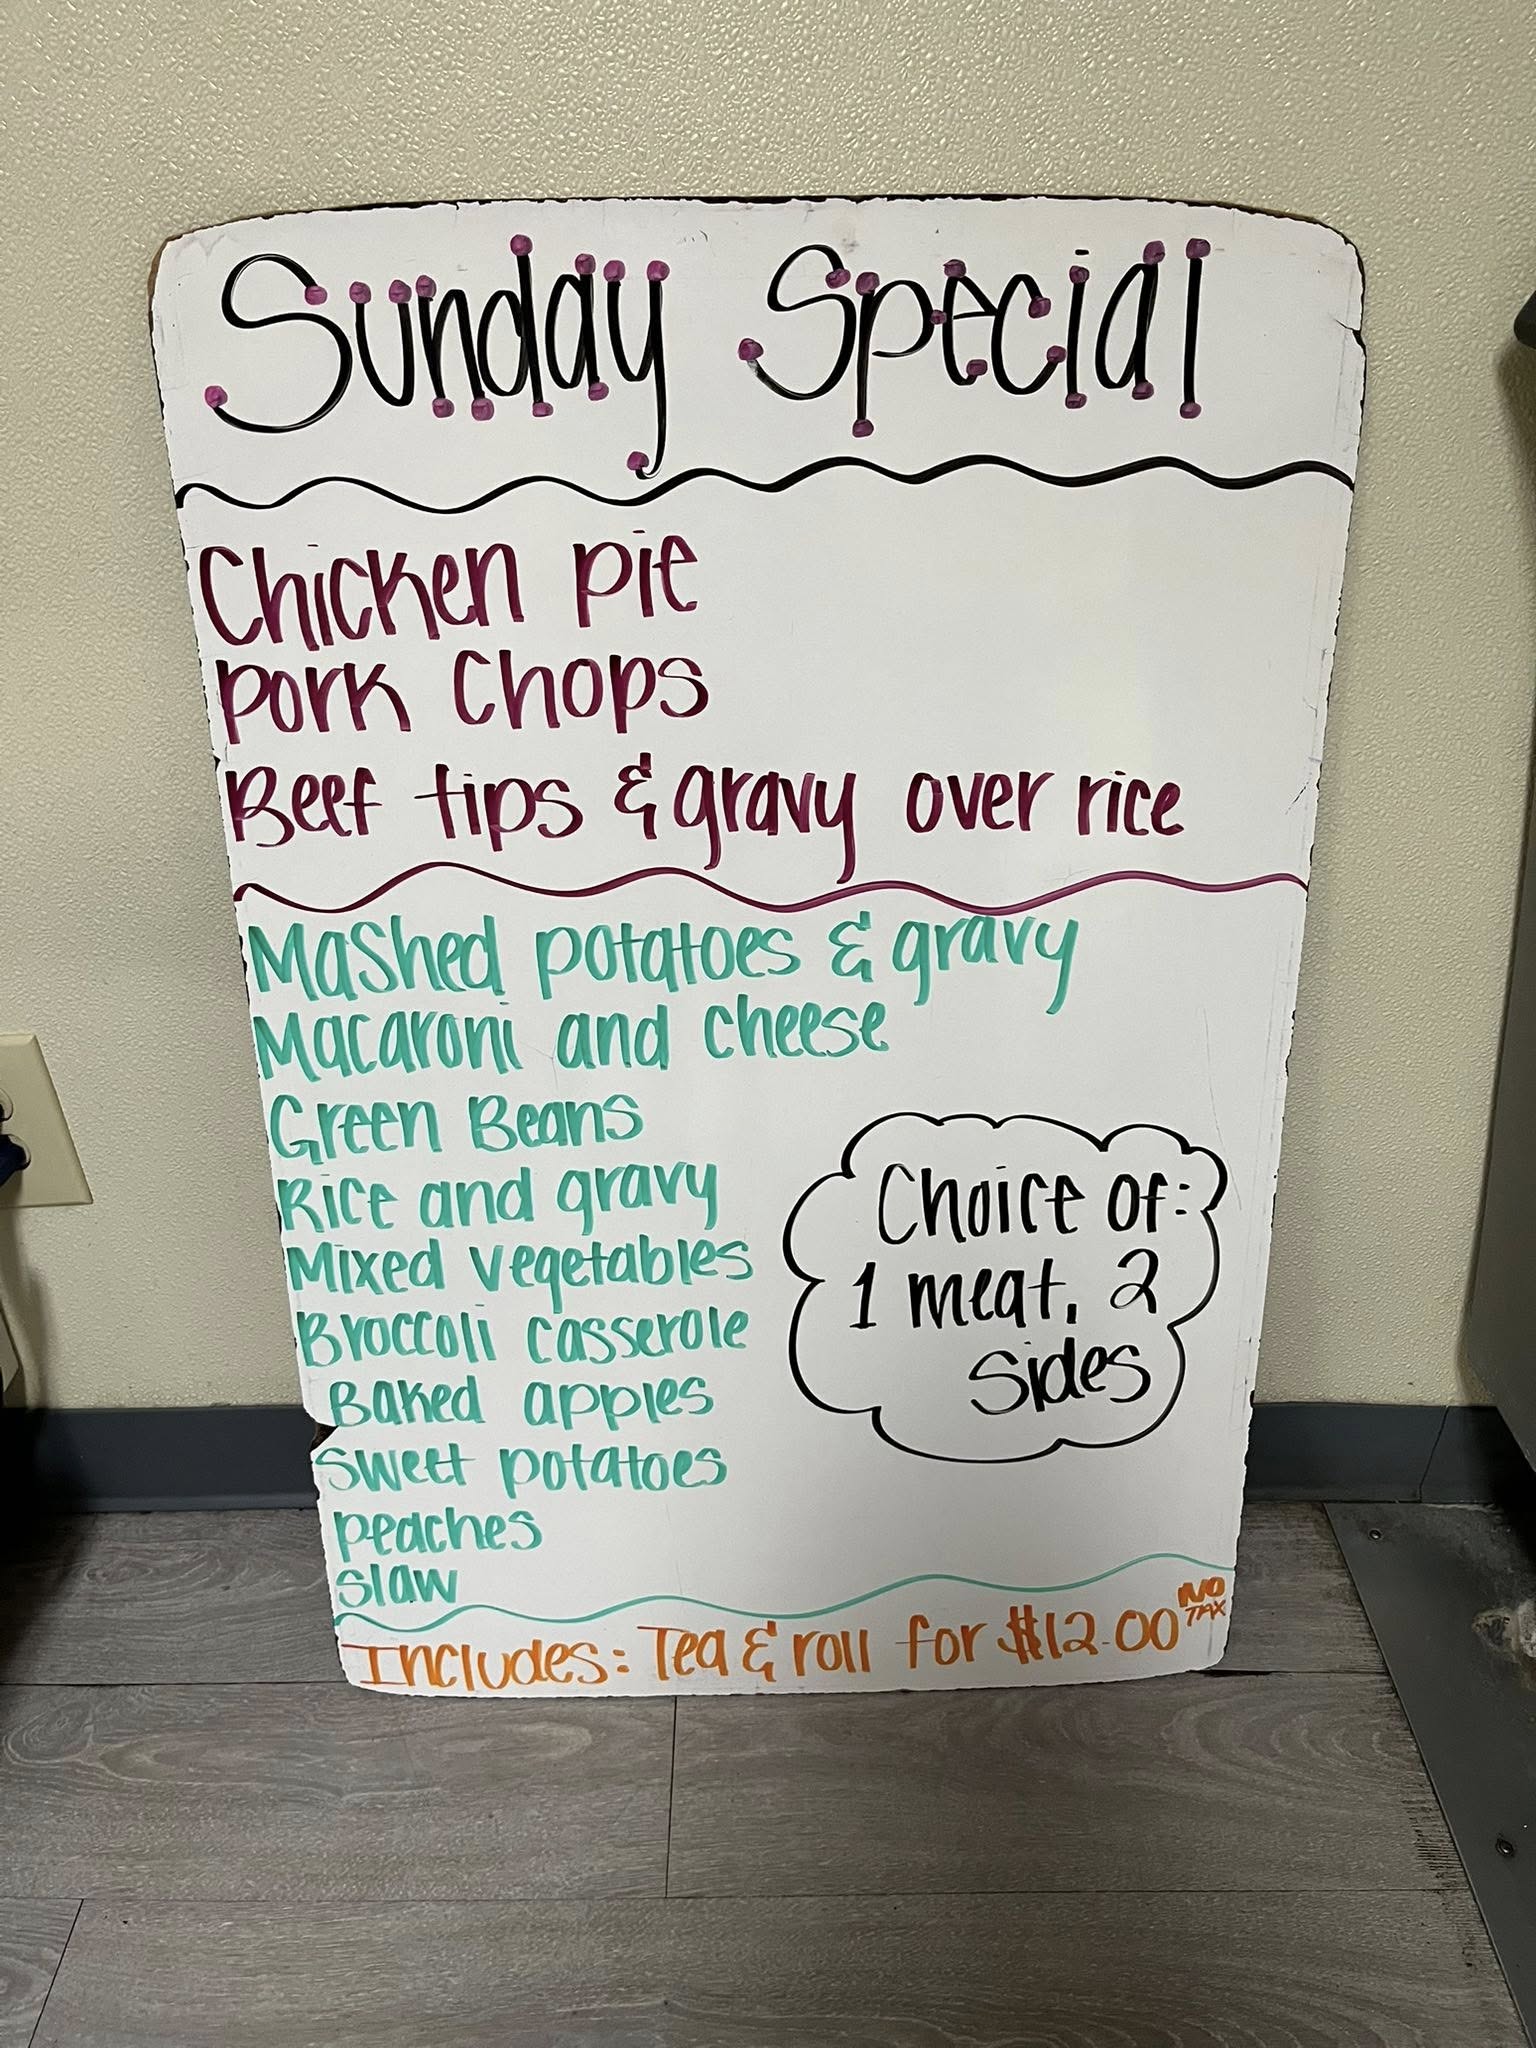 Sunday Special
Chicken pie
Pork Chops
Beef tips & gravy over rice
Mashed potatoes & gravy
Macaroni and cheese
Green Beans
Rice and gravy
Mixed vegetables
Broccoli casserole
Baked apples
Sweet potatoes
peaches
slaw
Choice of:
1 meat, 2
sides
Includes: Tea & roll for $12.00 NO
TAX